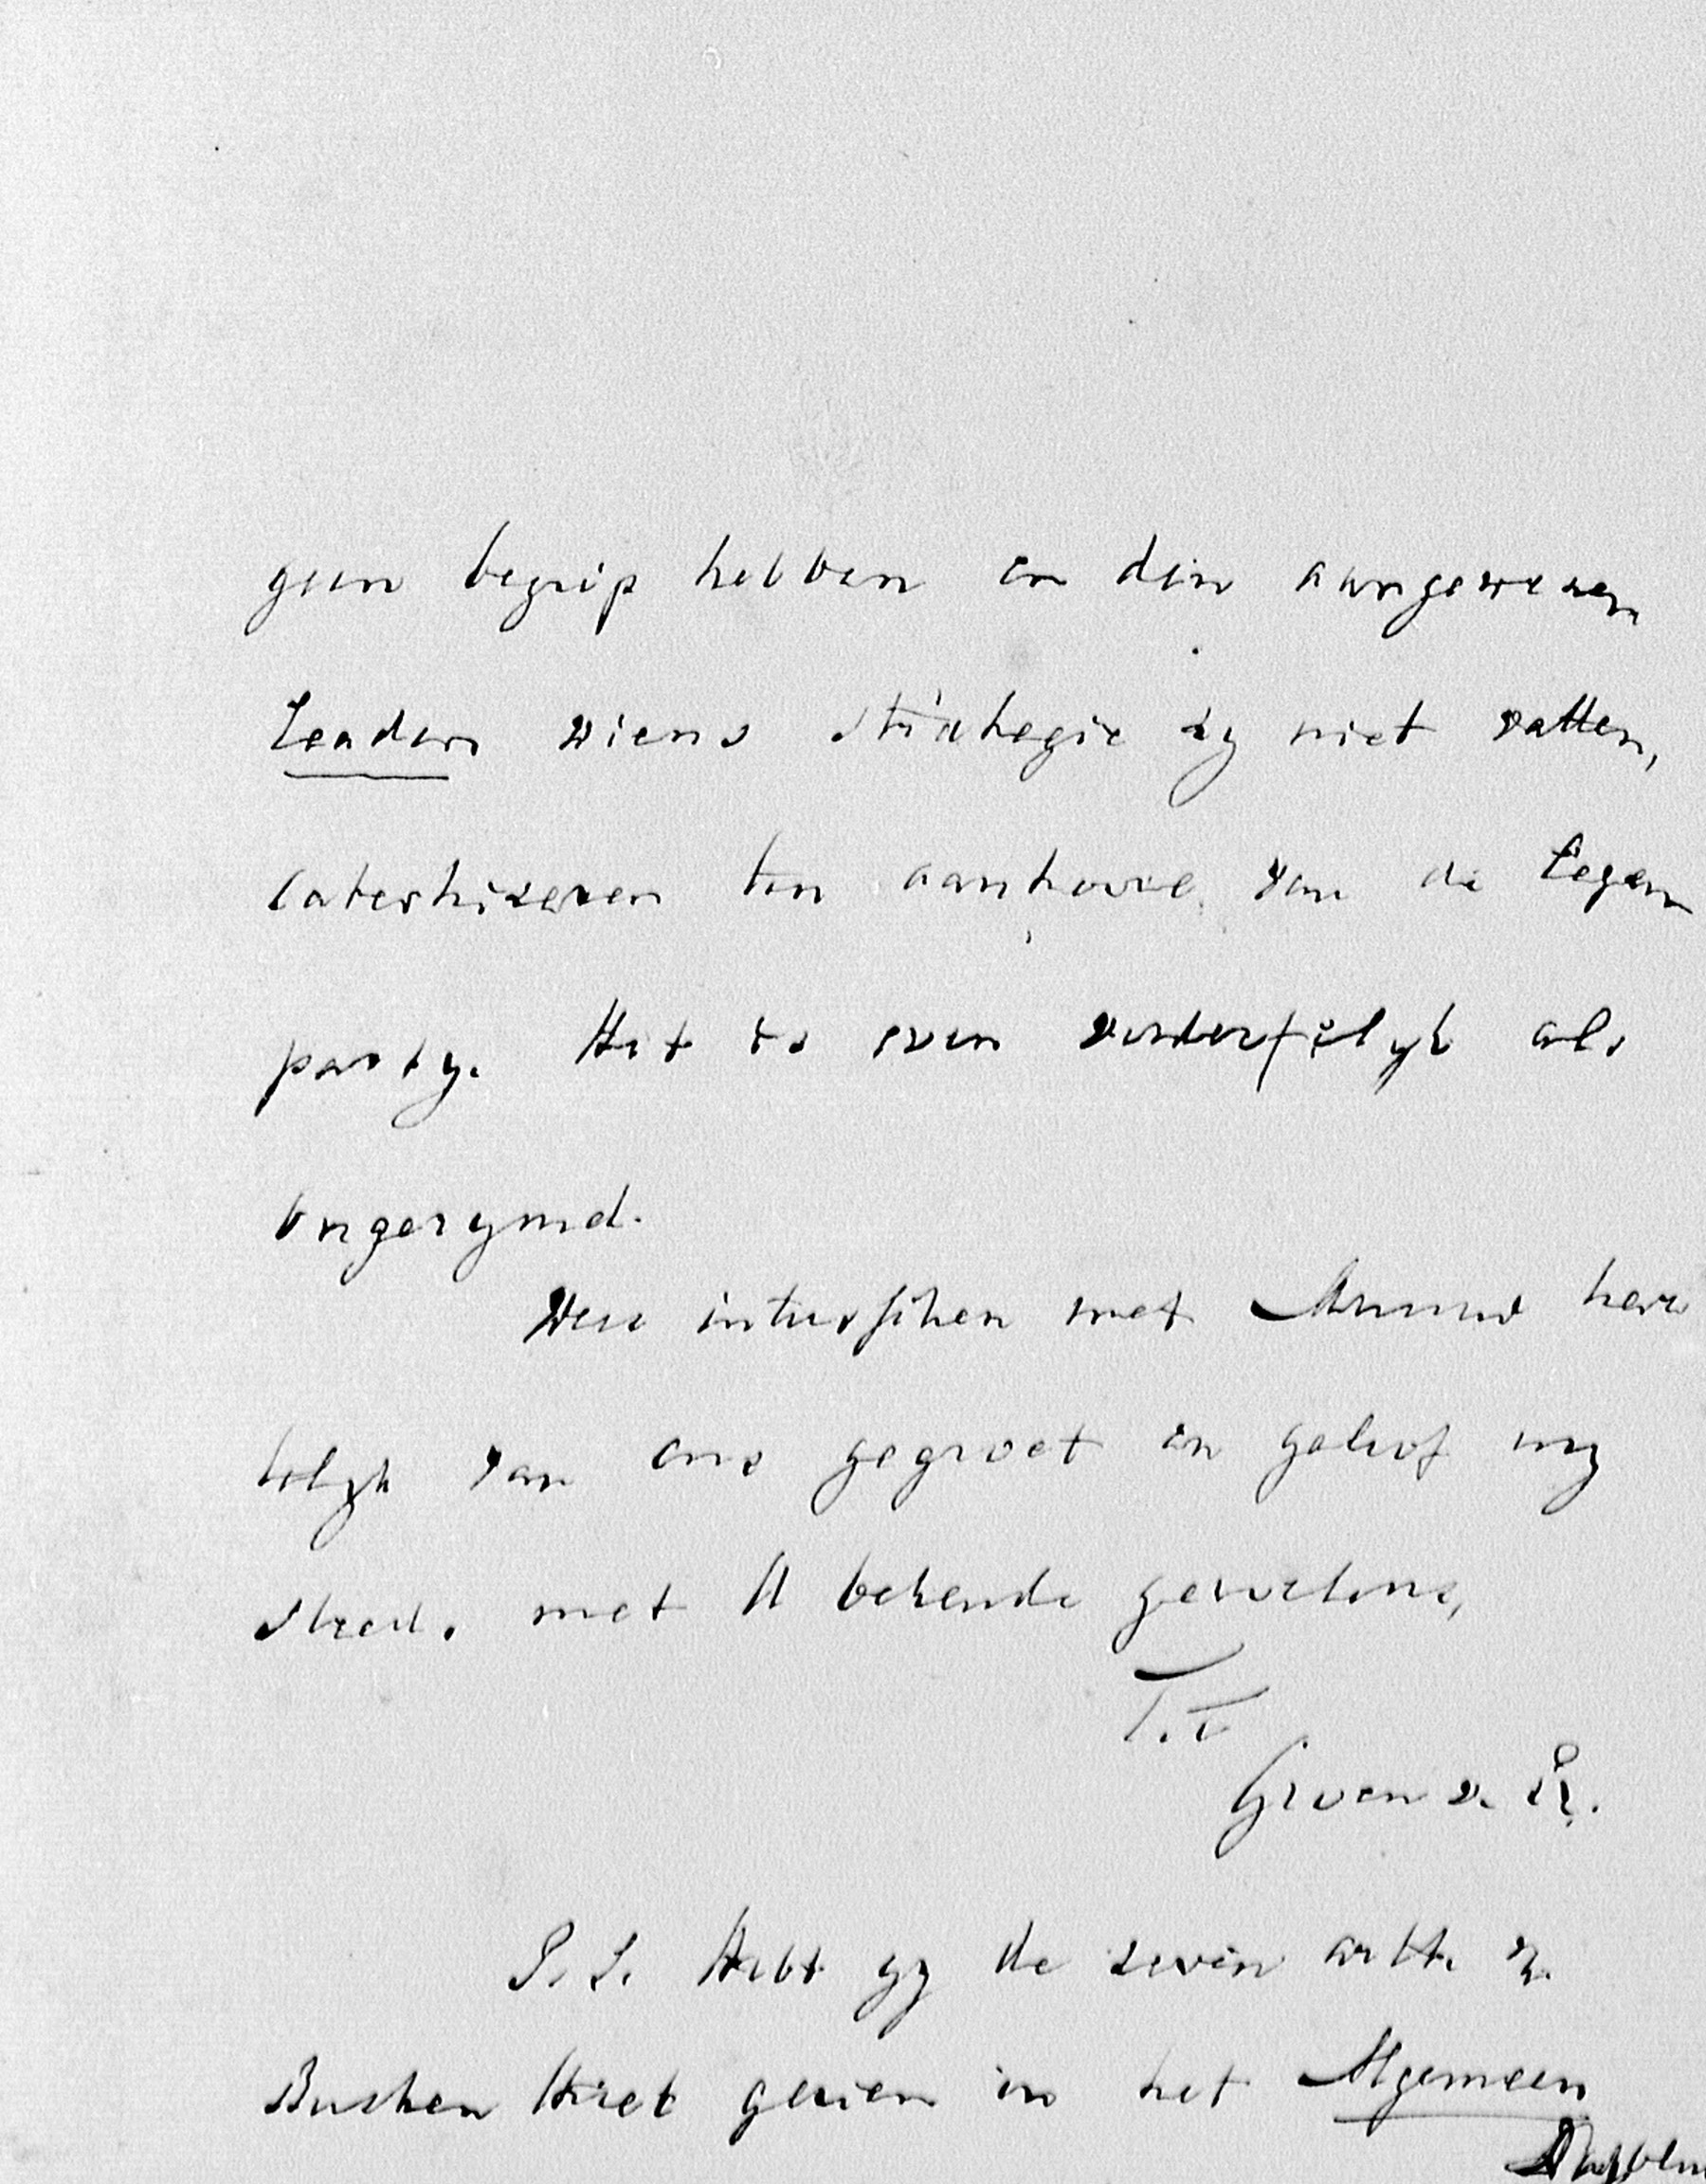 geen begrip hebben en den aangewezen
Leader, wiens strategie zy niet vatten,
catechizeren ten aanhoore van de tegen
party. Het is even verderfelyk als
ongerymd.
Wees intusschen met Mevrouw harte
telyk van ons gegroet en geloof my
steeds, met U bekende gevoelens,
T.t
Groen v. Pr.
P.S. Hebt gy de zeven artt. v.
Busken Huet gezien in het Algemeen